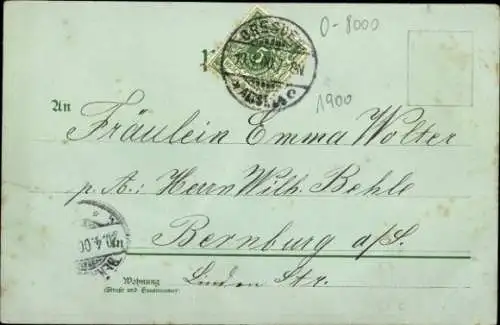 O-8000
DRESDEN
1900
An
Fräulein Emma Wolter
p. A.: Herrn Wilh. Behle
in
Bernburg a/S.
Linden Str.
Wohnung
(Straße und Hausnummer)